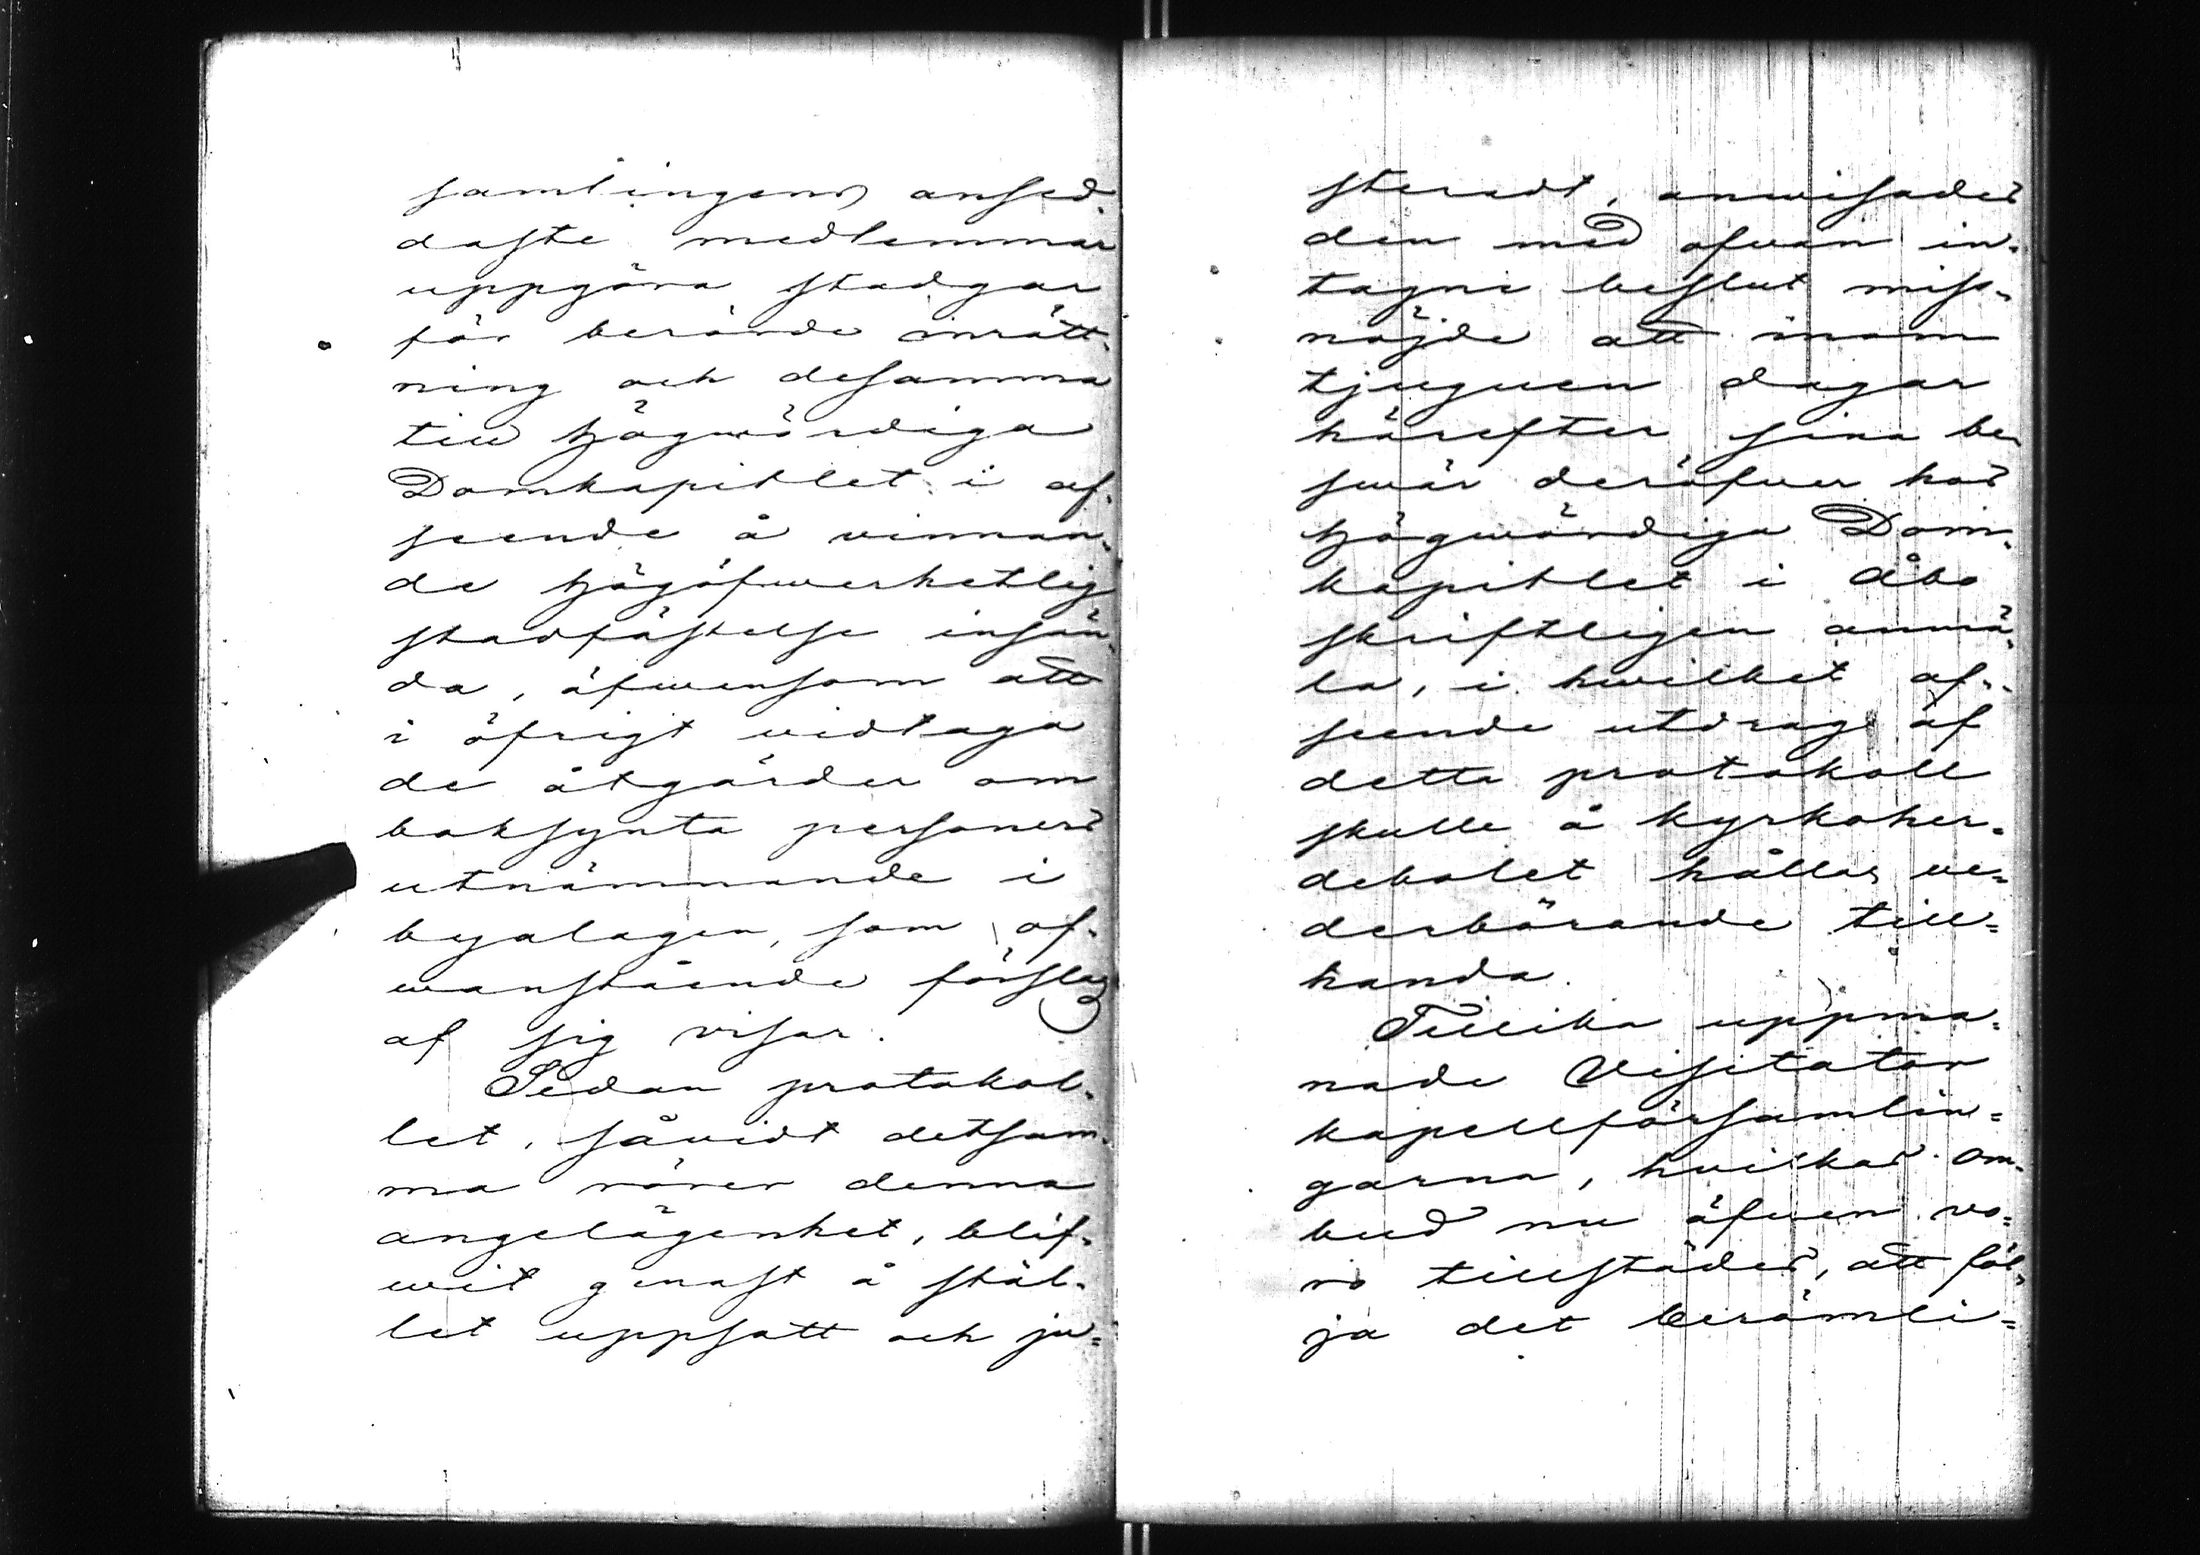 samlingens ansed.
daste medlemmar
uppgöra stadgar
för berörde inrätt-
ning och desamma
till Högwördiga
Domkapitlet i af-
seende å vinnan-
de högöfwerhetlig
stadfästelse insän-
da, äfwensom att
i öfrigt vidtaga
de åtgärder om
boksynta personers
utnämnande i
byalagen, som of-
wanstående förslag
af sig visar.
Sedan protokol-
let, såvidt detsam-
ma rörer denna
angelägenhet, blif-
wit genast å stäl-
let uppsatt och ju-
steradt, anwisades
den med ofwan in-
tagne beslut miss-
nöjde att inom
tjuguen dagar
härefter sina be-
swär deröfwer hos
Högwördiga Dom-
kapitlet i Åbo
skriftligen anmä-
la, i hwilket af-
seende utdrag af
detta protokoll
skulle å kyrkoher-
debolet hållas ve-
derbörande till-
handa.
Tillika uppma-
nade Visitator
kapellförsamlin-
garna, hvilkas om-
bud nu äfwen vo-
ro tillstädes, att föl-
ja det berömli-